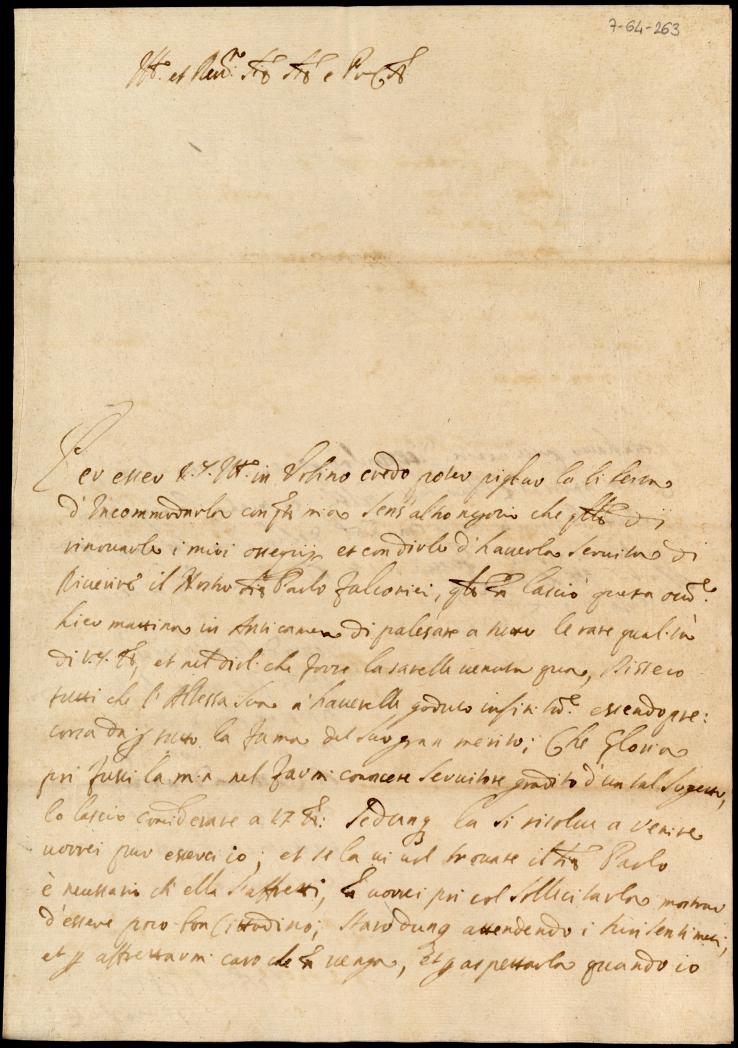 7-64-263
Ill.e et Reu.mo Sig.
Per esser V.S. Ill. in Urbino credo poter pigliar la licenza
d'Incommodarla con mia senz'altro che di
rinouarle i miei ossequij et con dirle d'hauerla seruita di
Riuerire il Nostro Sig.r Paolo Falconiei, lasciò questa
hier mattina in Anticamera di palesare a tutti le rare qualità
di V.S. et nel dirli che forse la sarebbe uenuta qua, dissero
tutti che l'Altezza Sua haurebbe goduto essendo pre:
corsa da p tutto la fama del suo gran merito; che Gloria
poi fussi la mia nel farmi conoscere Seruitore gradito d'un tal Sugetto,
lo lascio considerare a V.S. Se dunq la si risolue a uenire
uorrei pur esserci io; et se la ui uol trouare il Sig. Paolo
è necessario ch'ella s'affretti, uorrei poi col sollicitarla mostrar
d'essere poco bon Cittadino; Starò dunq attendendo i suoi sentimenti,
et p affrettarmi caso che uenga, et p aspettarla quando io